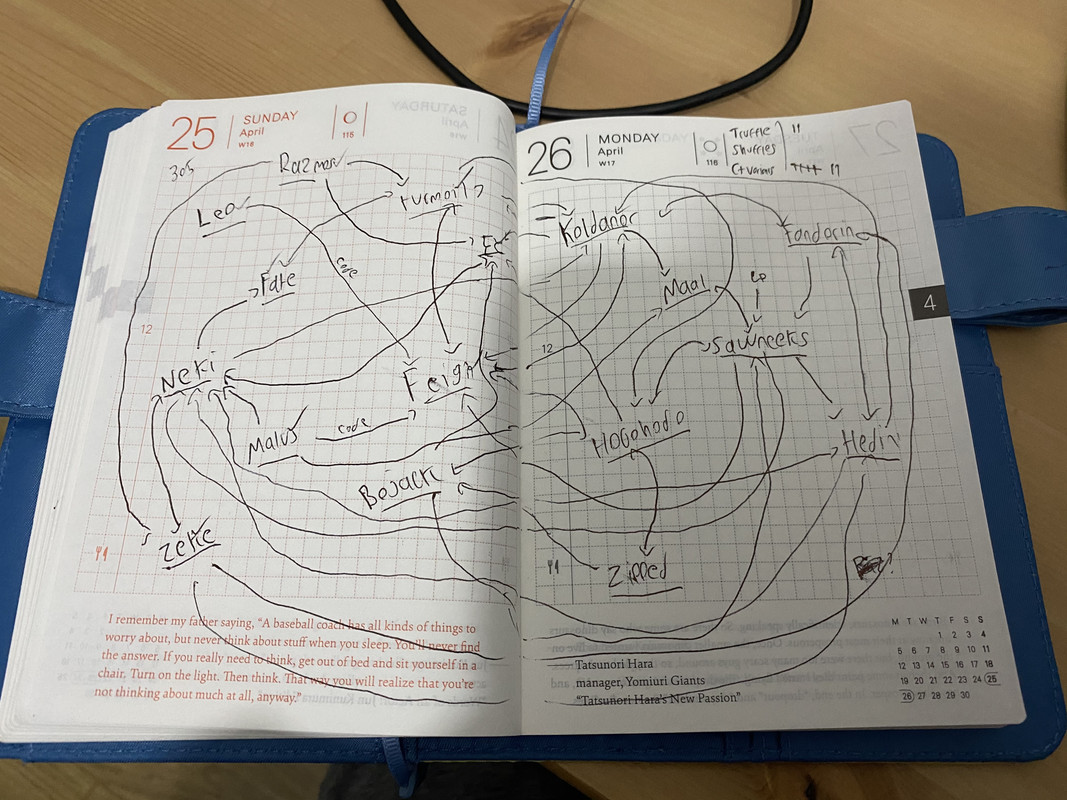 25
SUNDAY
April
W16
115
SATURDAY
April
305
Razmov
Leo
turmoil
Fate
code
12
Neki
Feign
Malus
code
Bojack
Zette
I remember my father saying, "A baseball coach has all kinds of things to
worry about, but never think about stuff when you sleep. You'll never find
the answer. If you really need to think, get out of bed and sit yourself in a
chair. Turn on the light. Then think. That way you will realize that you're
not thinking about much at all, anyway."
26
MONDAY
April
W17
116
27
Truffle
Shuffles
Koldanor
Fandorin
Maal
12
Sawneeks
Hogohodo
Hedin
Zipped
4
Tatsunori Hara
manager, Yomiuri Giants
"Tatsunori Hara's New Passion"
M T W T F S S
1 2 3 4
5 6 7 8 9 10 11
12 13 14 15 16 17 18
19 20 21 22 23 24 25
26 27 28 29 30